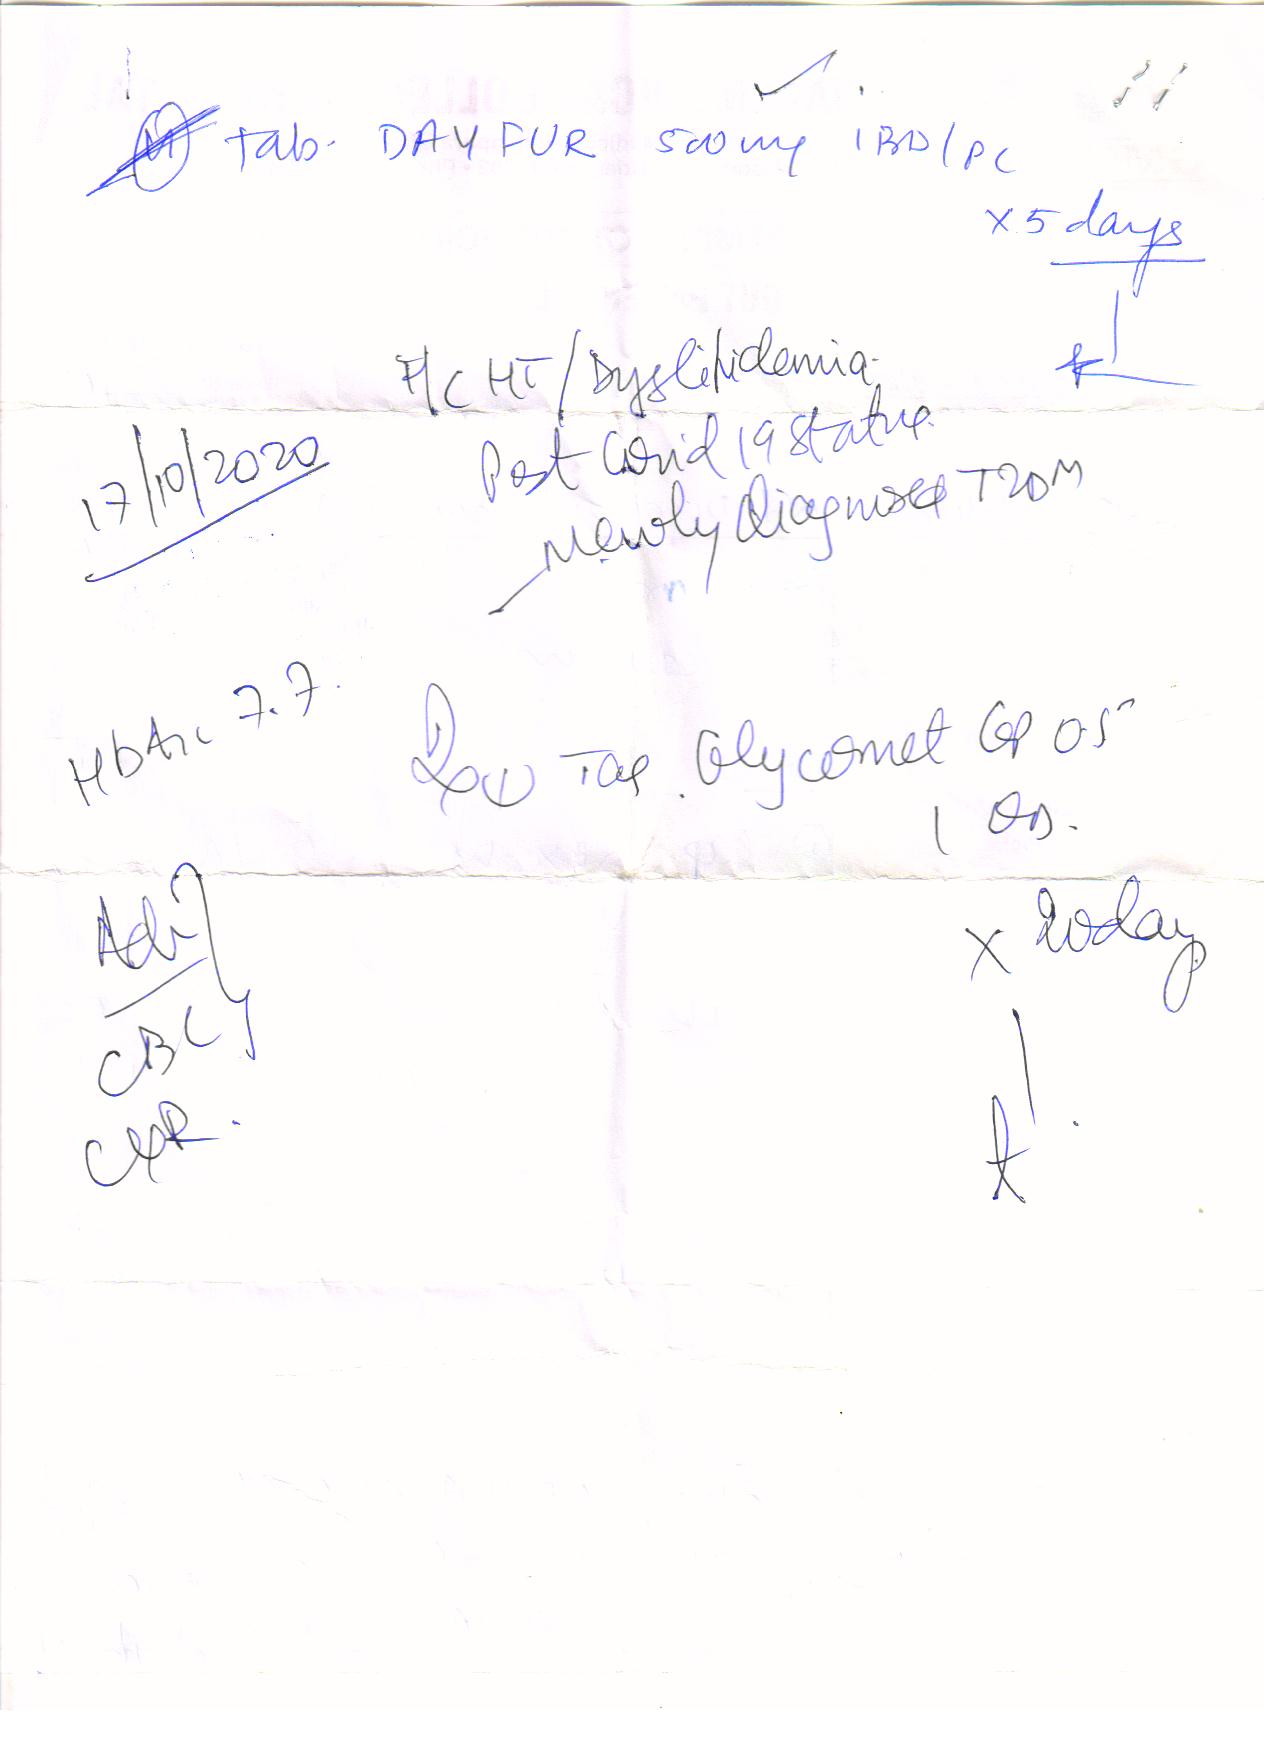 Tab. DAYFUR 500 mg 1BD/PC
x 5 days
F/C HT/Dyslipidemia
17/10/2020
Post Covid 19 Status
Newly diagnosed T2DM
HbA1c 7.7.
Rx ① Tab. Glycomet GP 0.5
1 OD.
Adv
x 20 days
CBC
CXR.